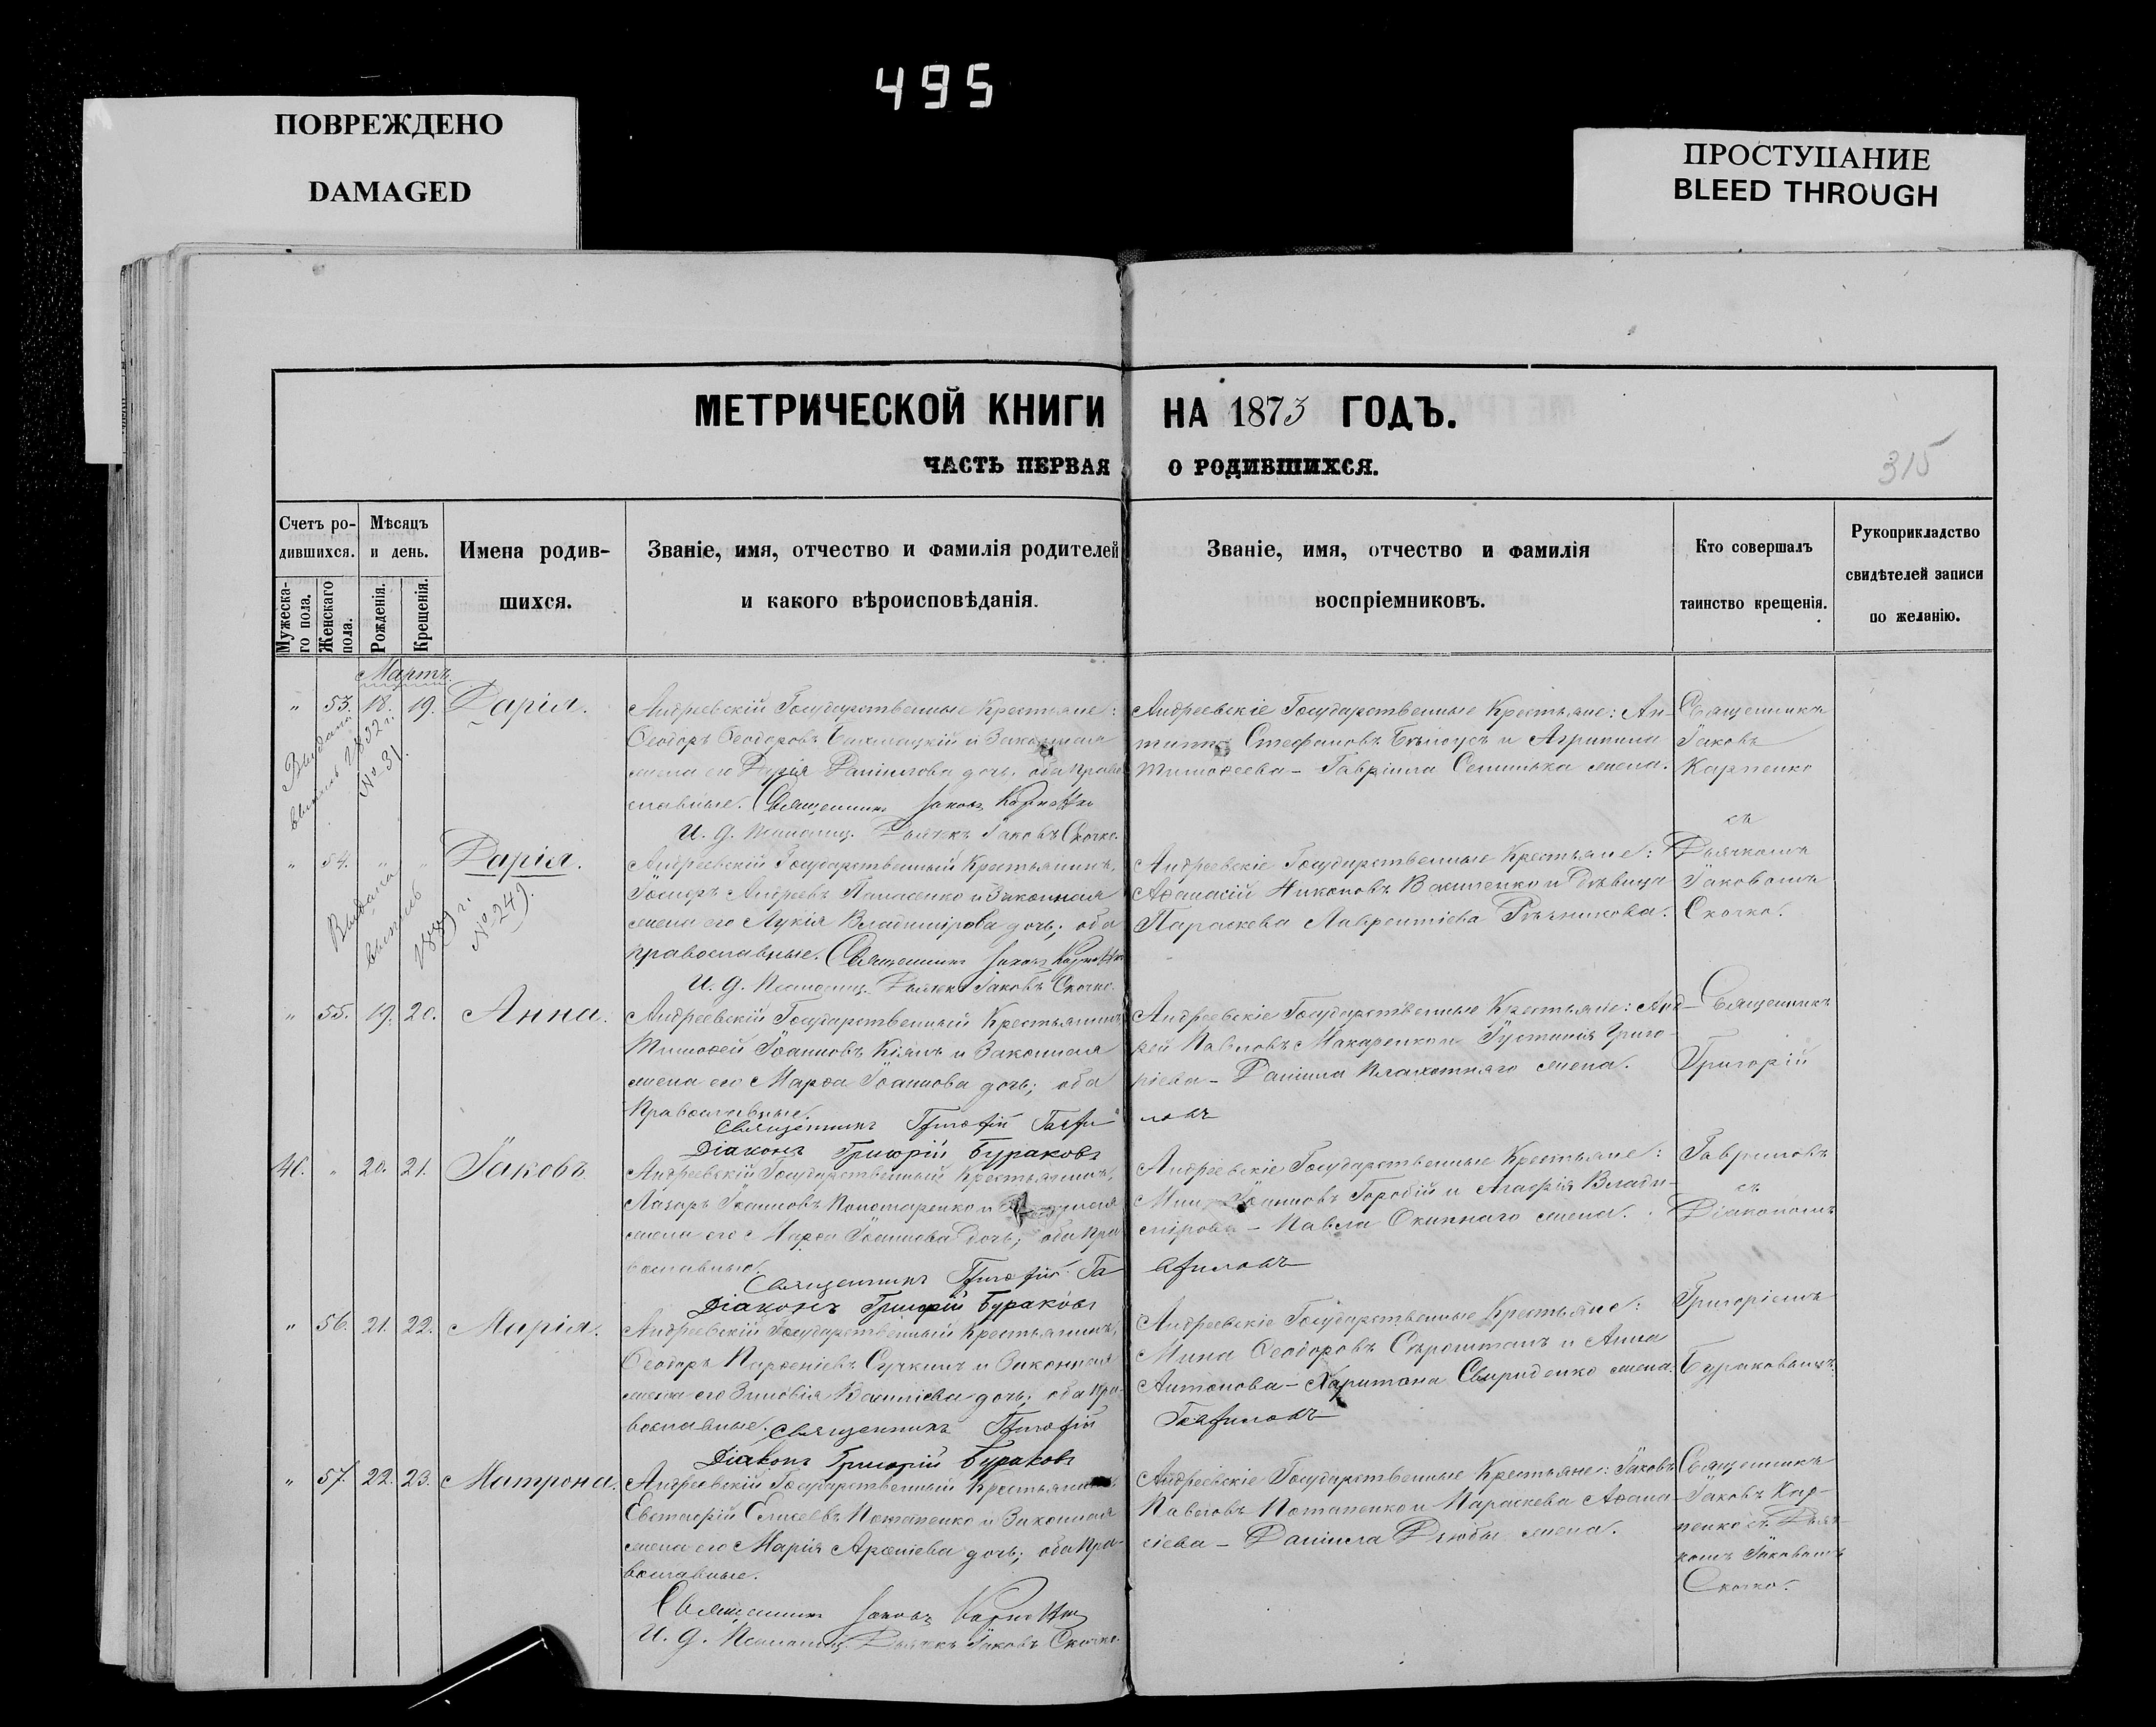 495
ПОВРЕЖДЕНО
DAMAGED
ПРОСТУПАНИЕ
BLEED THROUGH
МЕТРИЧЕСКОЙ КНИГИ НА 1873 ГОДЪ.
ЧАСТЬ ПЕРВАЯ О РОДИВШИХСЯ.
315
Счетъ ро-
дившихся.
Мужеска-
го пола.
Женскаго
пола.
Мѣсяцъ
и день.
Рожденія.
Крещенія.
Имена родив-
шихся.
Званіе, имя, отчество и фамилія родителей
и какого вѣроисповѣданія.
Званіе, имя, отчество и фамилія
воспріемниковъ.
Кто совершалъ
таинство крещенія.
Рукоприкладство
свидѣтелей записи
по желанію.
Мартъ.
" 53. 18. 19. Дарія.
Выдана
№ 31.
Андреевскій Государственные Крестьяне:
Ѳеодоръ Ѳеодоровъ и Законная
жена его Дарія Даніилова дочь, оба право
славные. Священникъ Іаковъ Карпенко
И. д. псаломщ. Дьячекъ Іаковъ Скочко.
Андреевскіе Государственные Крестьяне: Ан-
типъ Стефановъ Бѣлоусъ и Агрипина
Тимоѳеева - Гавріила жена.
Священникъ
Іаковъ
Карпенко
съ
Дьячкомъ
Іаковомъ
Скочко.
" 54. " " Дарія.
Выдана
1889 г.
№ 249.
Андреевскій Государственный Крестьянинъ,
Андреевъ и Законная
жена его Лукія Владимірова дочь; оба
православные. Священникъ Іаковъ Карпенко
И. д. псаломщ. Дьячекъ Іаковъ Скочко.
Андреевскіе Государственные Крестьяне:
Аѳанасій Никоновъ и Дѣвица
Параскева Лаврентіева
" 55. 19. 20. Анна.
Андреевскій Государственный Крестьянинъ,
Тимоѳей Іоанновъ Кіянъ и Законная
жена его Марѳа Іоаннова дочь; оба
Православные.
Священникъ Григорій Гаври
ловъ
Діаконъ Григорій Бураковъ
Андреевскіе Государственные Крестьяне: Анд-
рей Павловъ Макаренко и Іустинія Григо-
ріева - Даніила жена.
Священникъ
Григорій
Гавриловъ
съ
Діакономъ
Григоріемъ
Бураковымъ.
46. " 20. 21. Іаковъ.
Андреевскій Государственный Крестьянинъ,
Лазарь Іоанновъ Пономаренко и Законная
жена его Марѳа Іоаннова дочь; оба пра
вославные.
Священникъ Григорій Га
вриловъ
Діаконъ Григорій Бураковъ
Андреевскіе Государственные Крестьяне:
Іоанновъ Горобій и Агафія Влади-
мірова - Павла жена.
" 56. 21. 22. Марія.
Андреевскій Государственный Крестьянинъ,
Ѳеодоръ Парѳеніевъ Сучкинъ и Законная
жена его Зиновія дочь; оба пра-
вославные. Священникъ Григорій
Гавриловъ
Діаконъ Григорій Бураковъ
Андреевскіе Государственные Крестьяне:
Мина Ѳеодоровъ и Анна
Антонова - Харитона Свириденко жена.
" 57. 22. 23. Матрона.
Андреевскій Государственный Крестьянинъ
Евстафій Елисеевъ Потапенко и Законная
жена его Марія Арсеніева дочь; оба пра-
вославные.
Священникъ Іаковъ Карпенко
И. д. Псаломщ. Дьячекъ Іаковъ Скочко.
Андреевскіе Государственные Крестьяне: Іаковъ
Павловъ Потапенко и Параскева Аѳана-
сіева - Даніила Дзюбы жена.
Священникъ
Іаковъ Кар-
пенко съ Дьяч-
комъ Іаковомъ
Скочко.